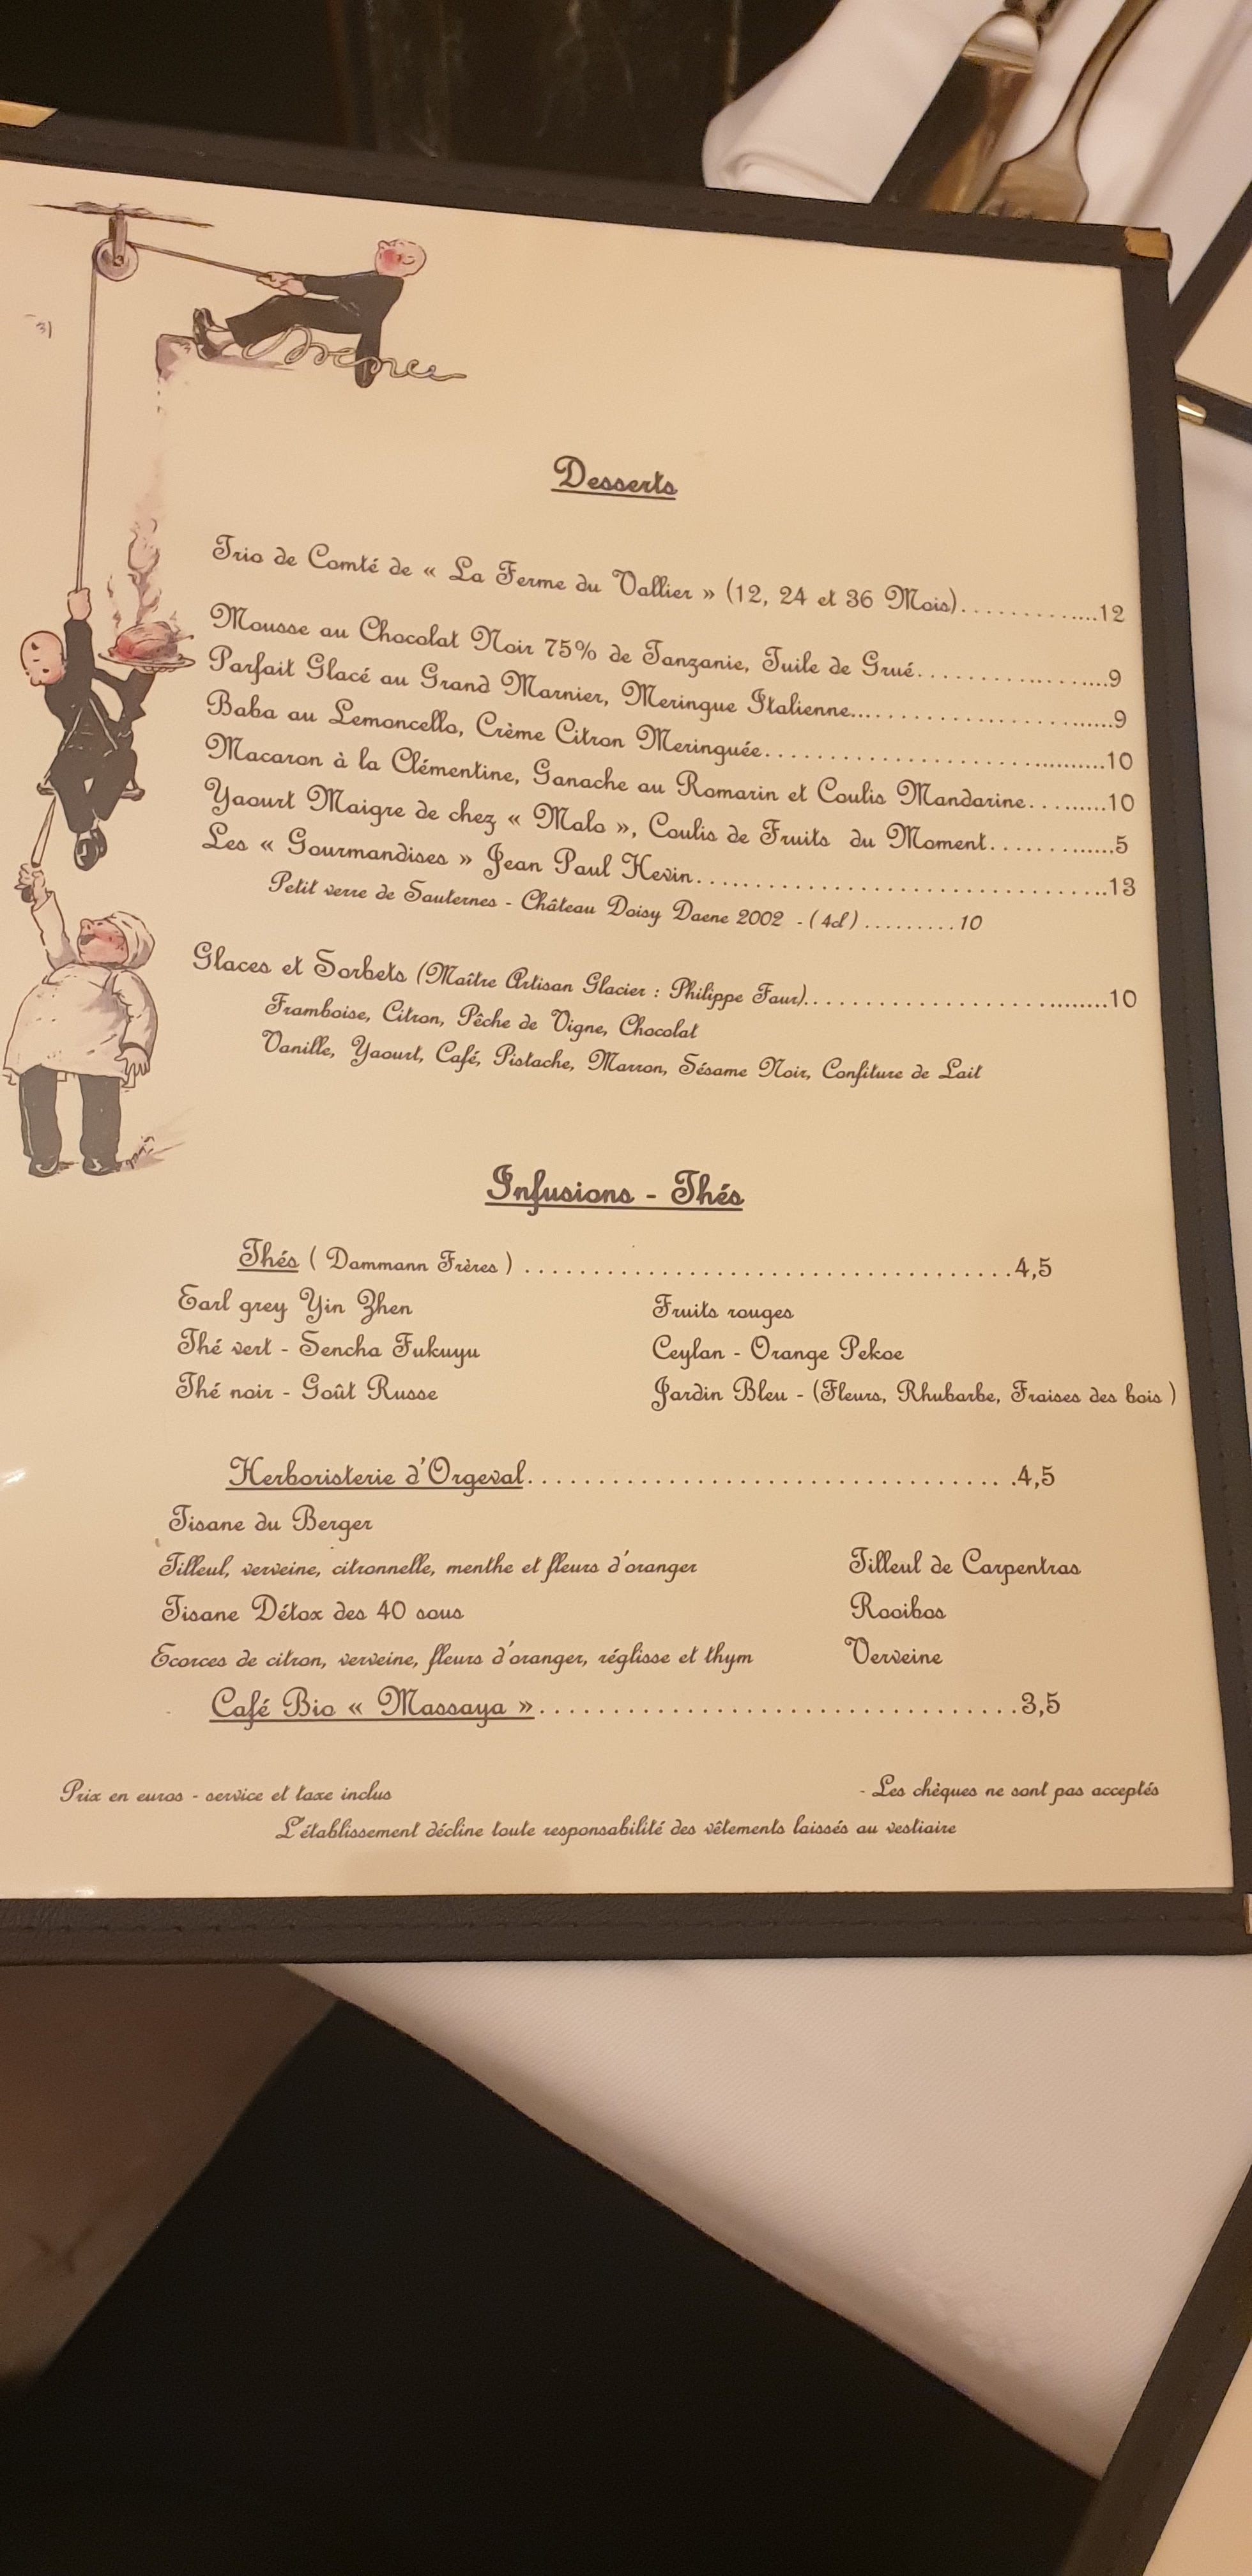 Desserts
Trio de Comté de « La Ferme du Vallier » (12, 24 et 36 Mois)...............12
Mousse au Chocolat Noir 75% de Tanzanie, Tuile de Grué.....................9
Parfait Glacé au Grand Marnier, Meringue Italienne..........................9
Baba au Lemoncello, Crème Citron Meringuée..............................10
Macaron à la Clémentine, Ganache au Romarin et Coulis Mandarine.........10
Yaourt Maigre de chez « Malo », Coulis de Fruits du Moment.............5
Les « Gourmandises » Jean Paul Hevin...................................13
Petit verre de Sauternes - Château Doisy Daene 2002 - (4cl).........10
Glaces et Sorbets (Maître Artisan Glacier : Philippe Faur)..........................10
Framboise, Citron, Pêche de Vigne, Chocolat
Vanille, Yaourt, Café, Pistache, Marron, Sésame Noir, Confiture de Lait
Infusions - Thés
Thés ( Dammann Frères ) ...................................4,5
Earl grey Yin Zhen Fruits rouges
Thé vert - Sencha Fukuyu Ceylan - Orange Pekoe
Thé noir - Goût Russe Jardin Bleu - (Fleurs, Rhubarbe, Fraises des bois )
Herboristerie d'Orgeval...................................4,5
Tisane du Berger
Tilleul, verveine, citronnelle, menthe et fleurs d'oranger Tilleul de Carpentras
Tisane Détox des 40 sous Rooibos
Ecorces de citron, verveine, fleurs d'oranger, réglisse et thym Verveine
Café Bio « Massaya »..................................3,5
Prix en euros - service et taxe inclus - Les chèques ne sont pas acceptés
L'établissement décline toute responsabilité des vêtements laissés au vestiaire